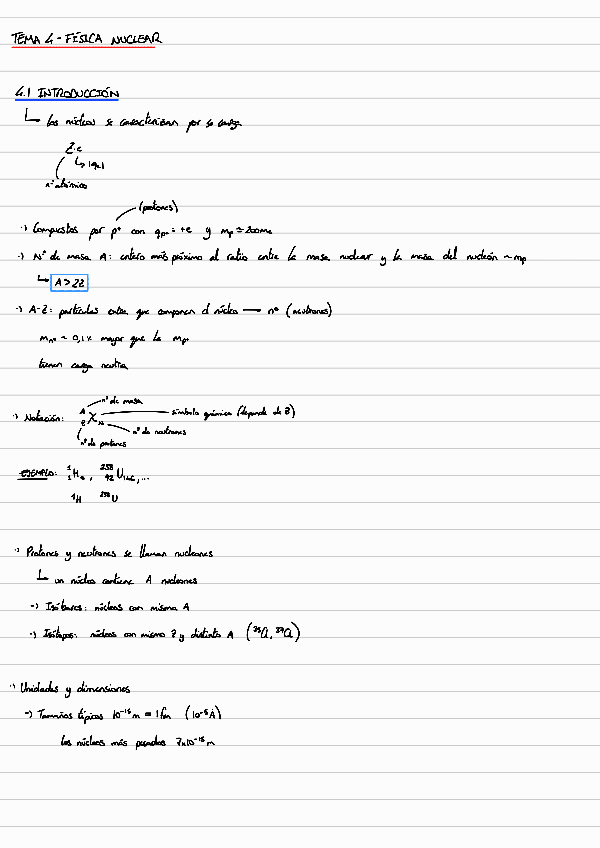 TEMA 4 - FÍSICA NUCLEAR
4.1 INTRODUCCIÓN
↳ Los núcleos se caracterizan por su carga
Z·e
↳ |qe|
nº atómico
(protones)
·) Compuestos por p⁺ con qp⁺ = +e y mp ≃ 2000me
·) Nº de masa A: entero más próximo al ratio entre la masa nuclear y la masa del nucleón ~ mp
↳ A > 2Z
·) A-Z: partículas extra que componen el núcleo — nº (neutrones)
mnº ~ 0,1% mayor que la mp
tienen carga neutra
nº de masa
·) Notación: A Z X N símbolo químico (depende de Z)
nº de neutrones
nº de protones
EJEMPLO: ¹₁H₀, ²³⁸₉₂U₁₄₆, ...
¹H ²³⁸U
·) Protones y neutrones se llaman nucleones
↳ un núcleo contiene A nucleones
-) Isóbaros: núcleos con misma A
-) Isótopos: núcleos con mismo Z y distinto A (³⁵Cl, ³⁷Cl)
·) Unidades y dimensiones
-) Tamaños típicos 10⁻¹⁵m = 1fm (10⁻⁵Å)
Los núcleos más pesados 7x10⁻¹⁵m